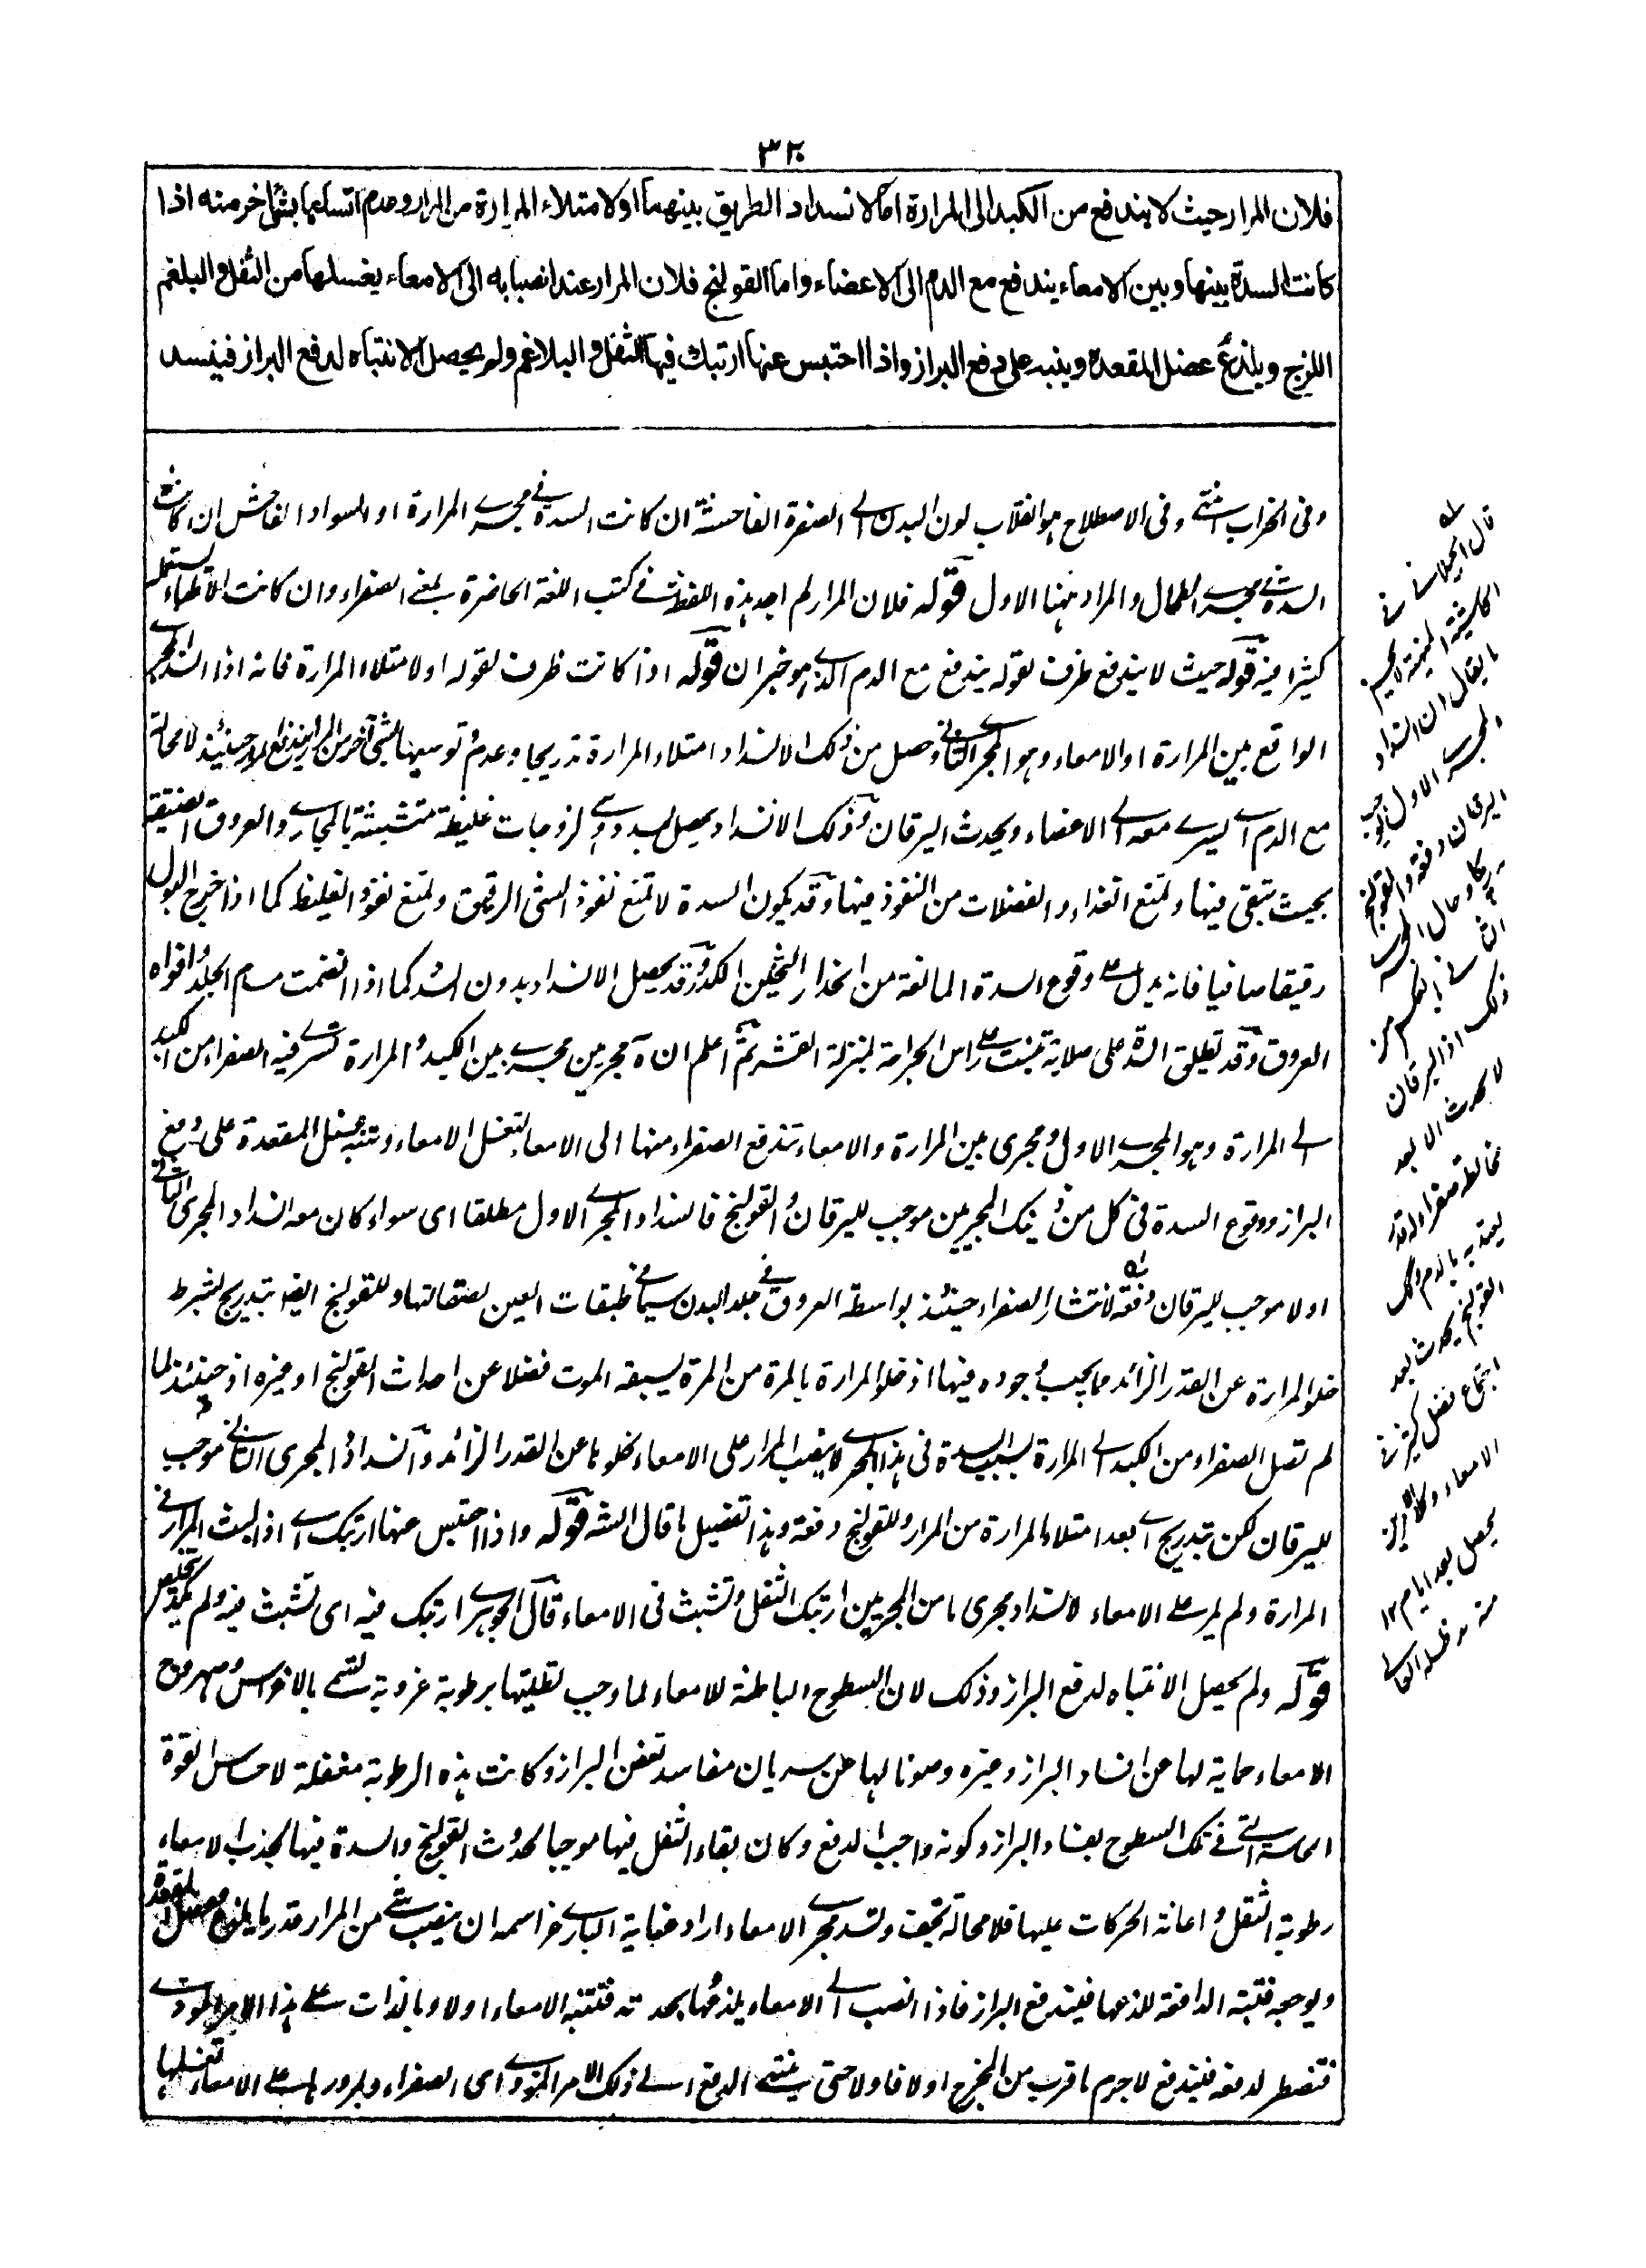 ٣٢٠
فلان المرار حيث لا يندفع من الكبد الى المرارة اما لانسداد الطريق بينهما او لامتلاء المرارة من المرار وعدم اتساعها بشئ اخر منه اذا
كانت السدة بينها وبين الامعاء يندفع مع الدم الى الاعضاء واما القولنج فلان المرار عند انصبابه الى الامعاء يغسلها من الثفل والبلغم
اللزج ويلذع عضل المقعدة وينبه على دفع البراز واذا احتبس عنها ارتبك فيها الثفل والبلاغم ولم يحصل الانتباه لدفع البراز فينسد
وفى الاصطلاح هو انقلاب لون البدن الى الصفرة الفاحشة ان كانت السدة فى مجرى المرارة او السواد الفاحش ان كانت
السدة فى مجرى الطحال والمراد ههنا الاول قوله فلان المرار لم اجد هذه اللفظة فى كتب اللغة الحاضرة بمعنى الصفراء وان كانت الاطباء يستعمله
كثيرا فيه قوله حيث لا يندفع ظرف لقوله يندفع مع الدم الذى هو خبر ان قوله اذا كانت ظرف لقوله او لامتلاء المرارة فانه اذا انسد المجرى
الواقع بين المرارة او الامعاء وهو المجرى الثانى وحصل من ذلك الانسداد امتلاء المرارة تدريجا وعدم توسيعها لشئ آخر من المرار يندفع المرار حينئذ لا محالة
مع الدم اى يسرى معه الى الاعضاء ويحدث اليرقان وذلك الانسداد يحصل بسدد وهى لزوجات غليظة متشبثة بالمجارى والعروق الضيقة
بحيث تبقى فيها وتمنع الغذاء والفضلات من النفوذ فيها وقد يكون السدة لا تمنع نفوذ الشئ الرقيق وتمنع نفوذ الغليظ كما اذا خرج البول
رقيقا صافيا فانه يدل على وقوع السدة المانعة من انحدار الثخين الكدر وقد يحصل الانسداد بدون السدد كما اذا انضمت مسام الجلد وافواه
العروق وقد تطلق السدة على صلابة تنبت على راس الجراحة بمنزلة القشر ثم اعلم ان ه مجريين مجرى بين الكبد والمرارة تسرى فيه الصفراء من الكبد
الى المرارة وهو المجرى الاول ومجرى بين المرارة والامعاء تندفع الصفراء منها الى الامعاء لتغسل الامعاء وتنبه عضل المقعدة على دفع
البراز ووقوع السدة فى كل من ذينك المجريين موجب لليرقان والقولنج فانسداد المجرى الاول مطلقا اى سواء كان معه انسداد المجرى الثانى
او لا موجب لليرقان دفعة لانتشار الصفراء حينئذ بواسطة العروق فى جلد البدن سيما فى طبقات العين لصقالتها وللقولنج ايضا بتدريج بشرط
خلو المرارة عن القدر الزائد مما يجب وجوده فيها اذ خلو المرارة بالمرة من المرة يسبقه الموت فضلا عن احداث القولنج او غيره اذ حينئذ لما
لم تصل الصفراء من الكبد الى المرارة بسبب السدة فى هذا المجرى لا ينصب المرار على الامعاء لخلوها عن القدر الزائد وانسداد المجرى الثانى موجب
لليرقان لكن بتدريج اى بعد امتلاء المرارة من المرار وللقولنج دفعة وهذا تفصيل ما قال الشه قوله واذا احتبس عنها ارتبك اى اذا لبث المرار فى
المرارة ولم يمر على الامعاء لانسداد مجرى ما من المجريين ارتبك الثفل وتشبث فى الامعاء قال الجوهرى ارتبك فيه اى تشبث فيه ولم يكد يتخلص
قوله ولم يحصل الانتباه لدفع البراز وذلك لان السطوح الباطنة للامعاء لما وجب تطليتها برطوبة غروية تسمى بالاغراس وصهروج
الامعاء حماية لها عن افساد البراز وغيره وصونا لها عن سريان مفاسد تعفن البراز وكانت هذه الرطوبة مغفلة لاحساس القوة
الحاسة التى فى تلك السطوح بفساد البراز وكونه واجب الدفع وكان بقاء الثفل فيها موجبا لحدوث القولنج والسدة فيها لجذب الامعاء
رطوبة الثفل واعانة الحركات عليها فلا محالة تجف وتسد مجرى الامعاء اراد عناية البارى عز اسمه ان ينصب شئ من المرار قدر ما يلذع عضل المقعدة
ويوجعه فتنبه الدافعة للذعها فيندفع البراز فاذا انصب الى الامعاء يلذعها بحدته فتتنبه الامعاء اولا وبالذات على هذا الامر الموذى
فتضطر لدفعه فيندفع لا جرم ما قرب من المخرج اولا فاولا حتى ينتهى الدفع الى ذلك الامر الموذى اى الصفراء وبمرورها على الامعاء تغسلها
قال الجيلانى فى
ما يقال ان انسداد
المجرى الاول يوجب
اليرقان دفعة والقولنج
تدريجا وحال المجرى
الثانى بالعكس من
ذلك اذ اليرقان
لا يحدث الا بعد
مخالطة صفراء لها قدر
يعتد به بالدم وكذا
القولنج يحدث بعد
اجتماع ثفل كثير فى
الامعاء وكلا الامرين
يحصل بعد ايام ١٢
منه مد ظله العالى